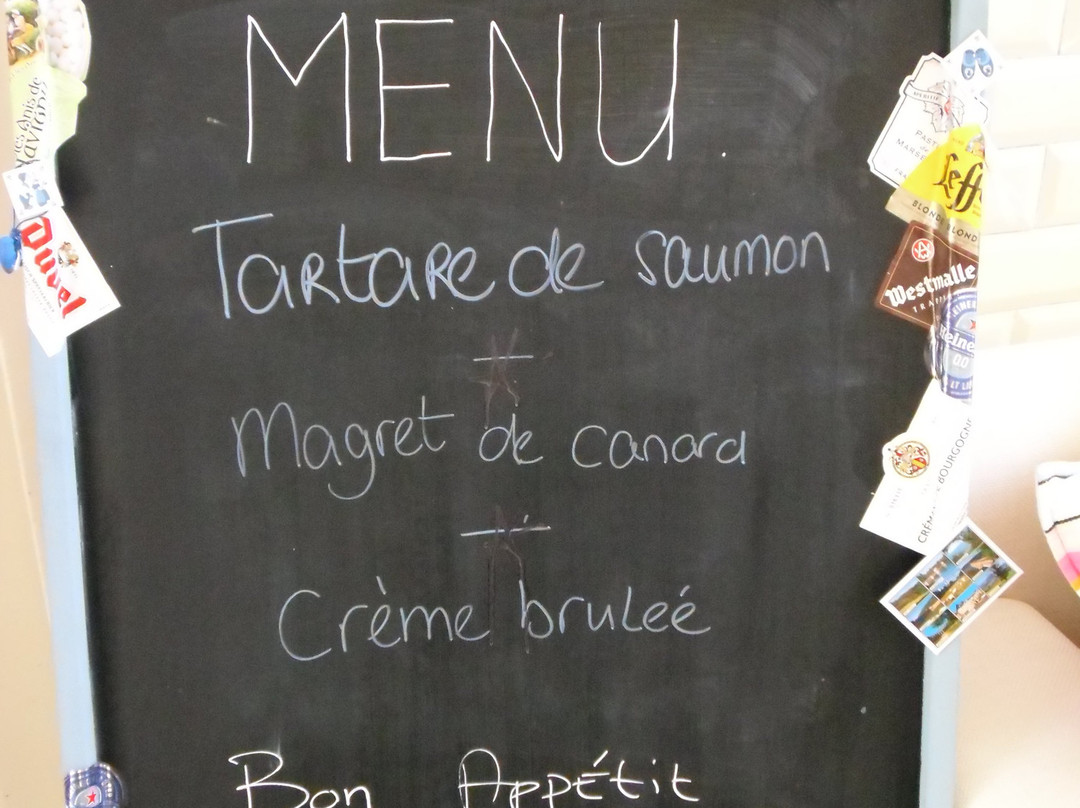 MENU.
Tartare de saumon
Magret de canard
Crème bruleé
Bon Appétit
Les Anis de
Flavigny
Duvel
Leffe
BLONDE BLOND
Westmalle
TRAPPIST
Heine
CRÉMANT DE BOURGOGNE